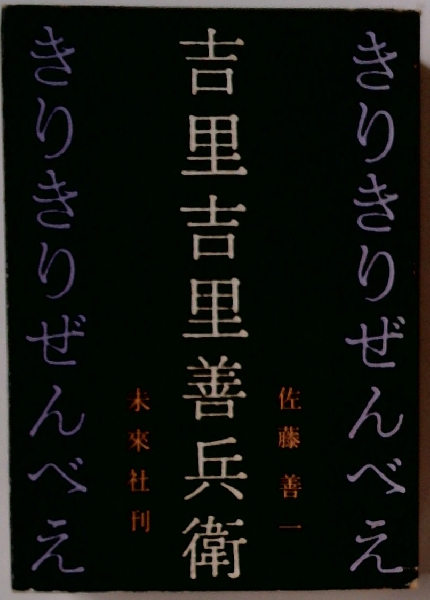 きりきりぜんべえ
佐藤善一
吉里吉里善兵衛
未來社刊
きりきりぜんべえ